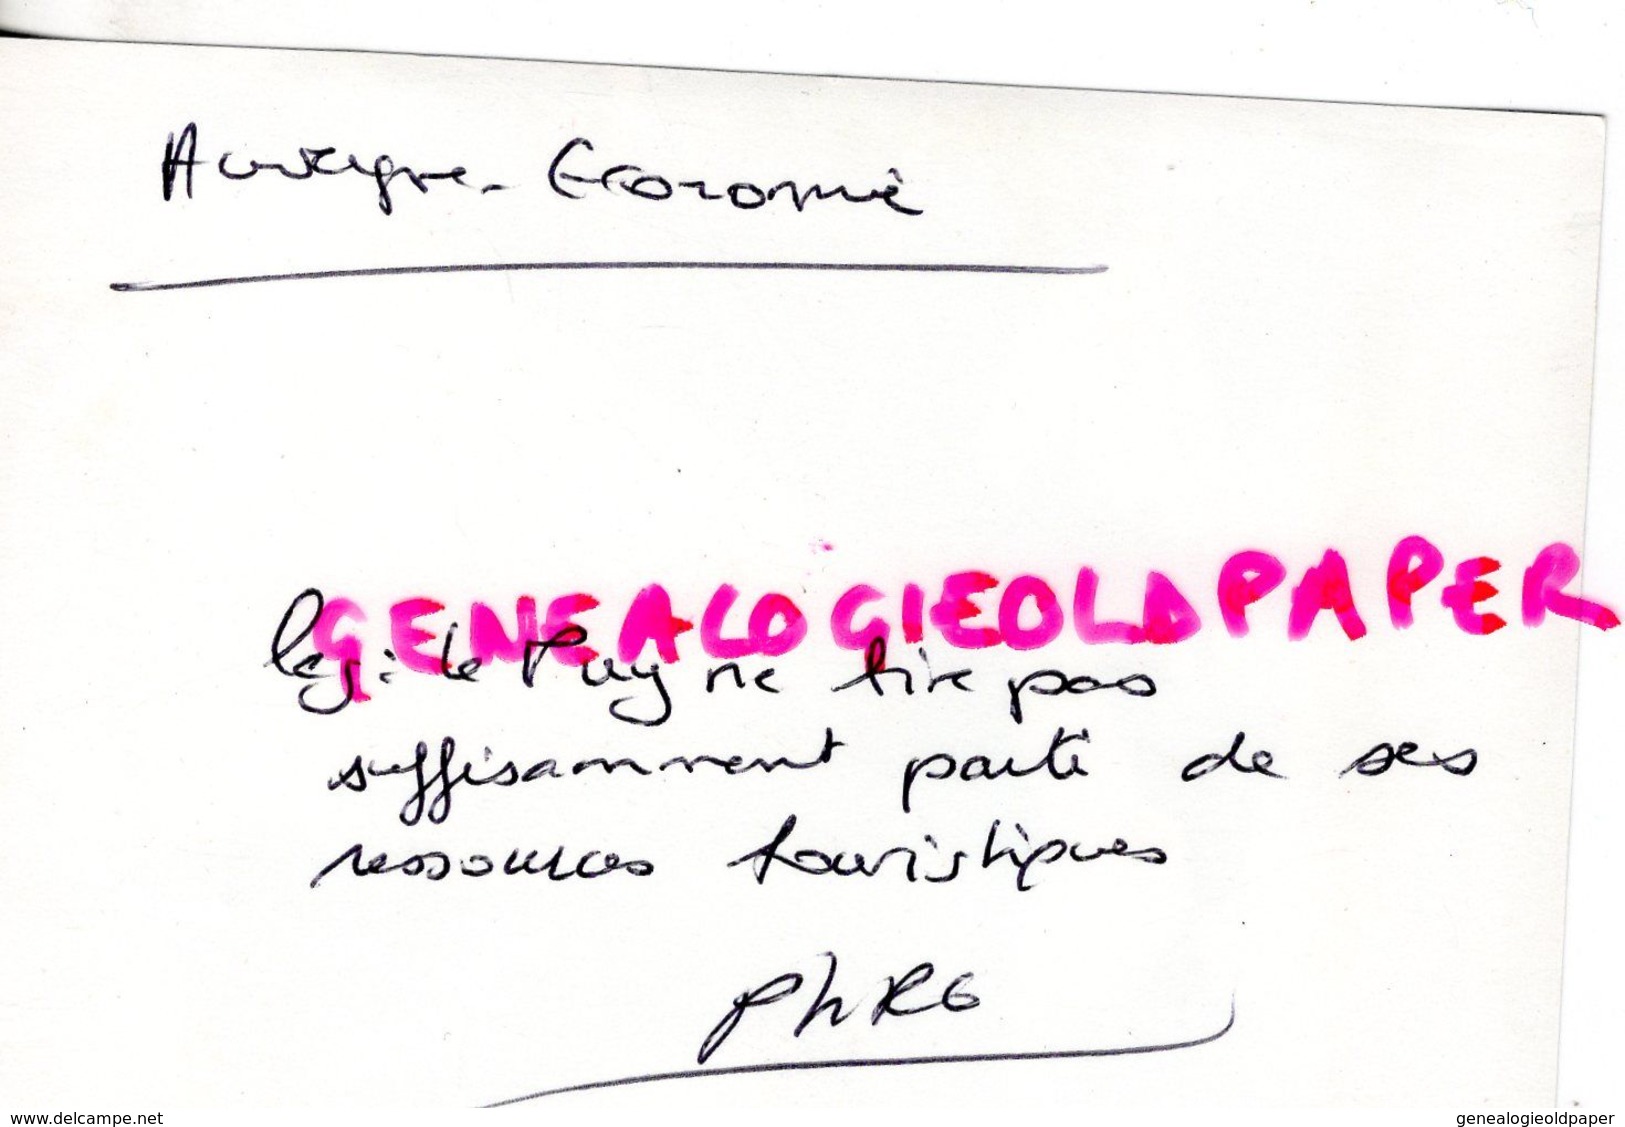 Auvergne - Economie
GENEALOGIEOLDPAPER
leg: le Puy ne tire pas
suffisamment parti de ses
ressources touristiques
PhRG
www.delcampe.net
genealogieoldpaper